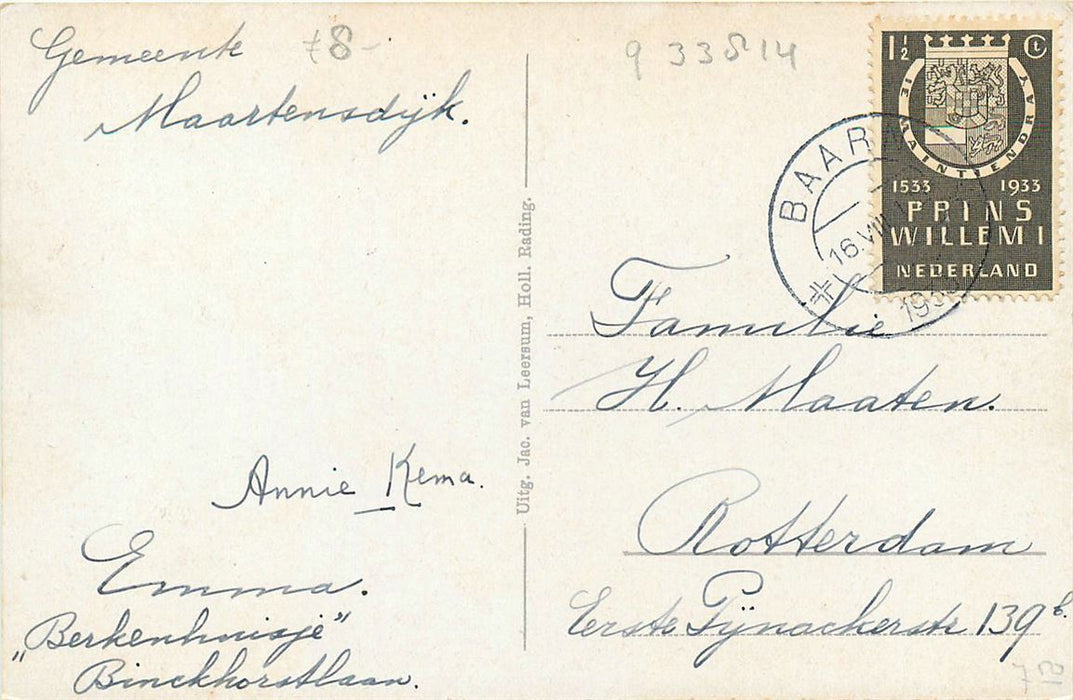 Gemeente
Maartensdijk.
Annie Kema.
Emma.
„Berkenhuisje"
Binckhorstlaan.
Uitg. Jac. van Leersum, Holl. Rading.
9 33814
1½ Ct
JE MAINTIENDRAY
1533 1933
PRINS
WILLEM I
NEDERLAND
BAARN
16.VIII
1933
Familie
H. Maaten.
Rotterdam
Eerste Pijnackerstr 139b.